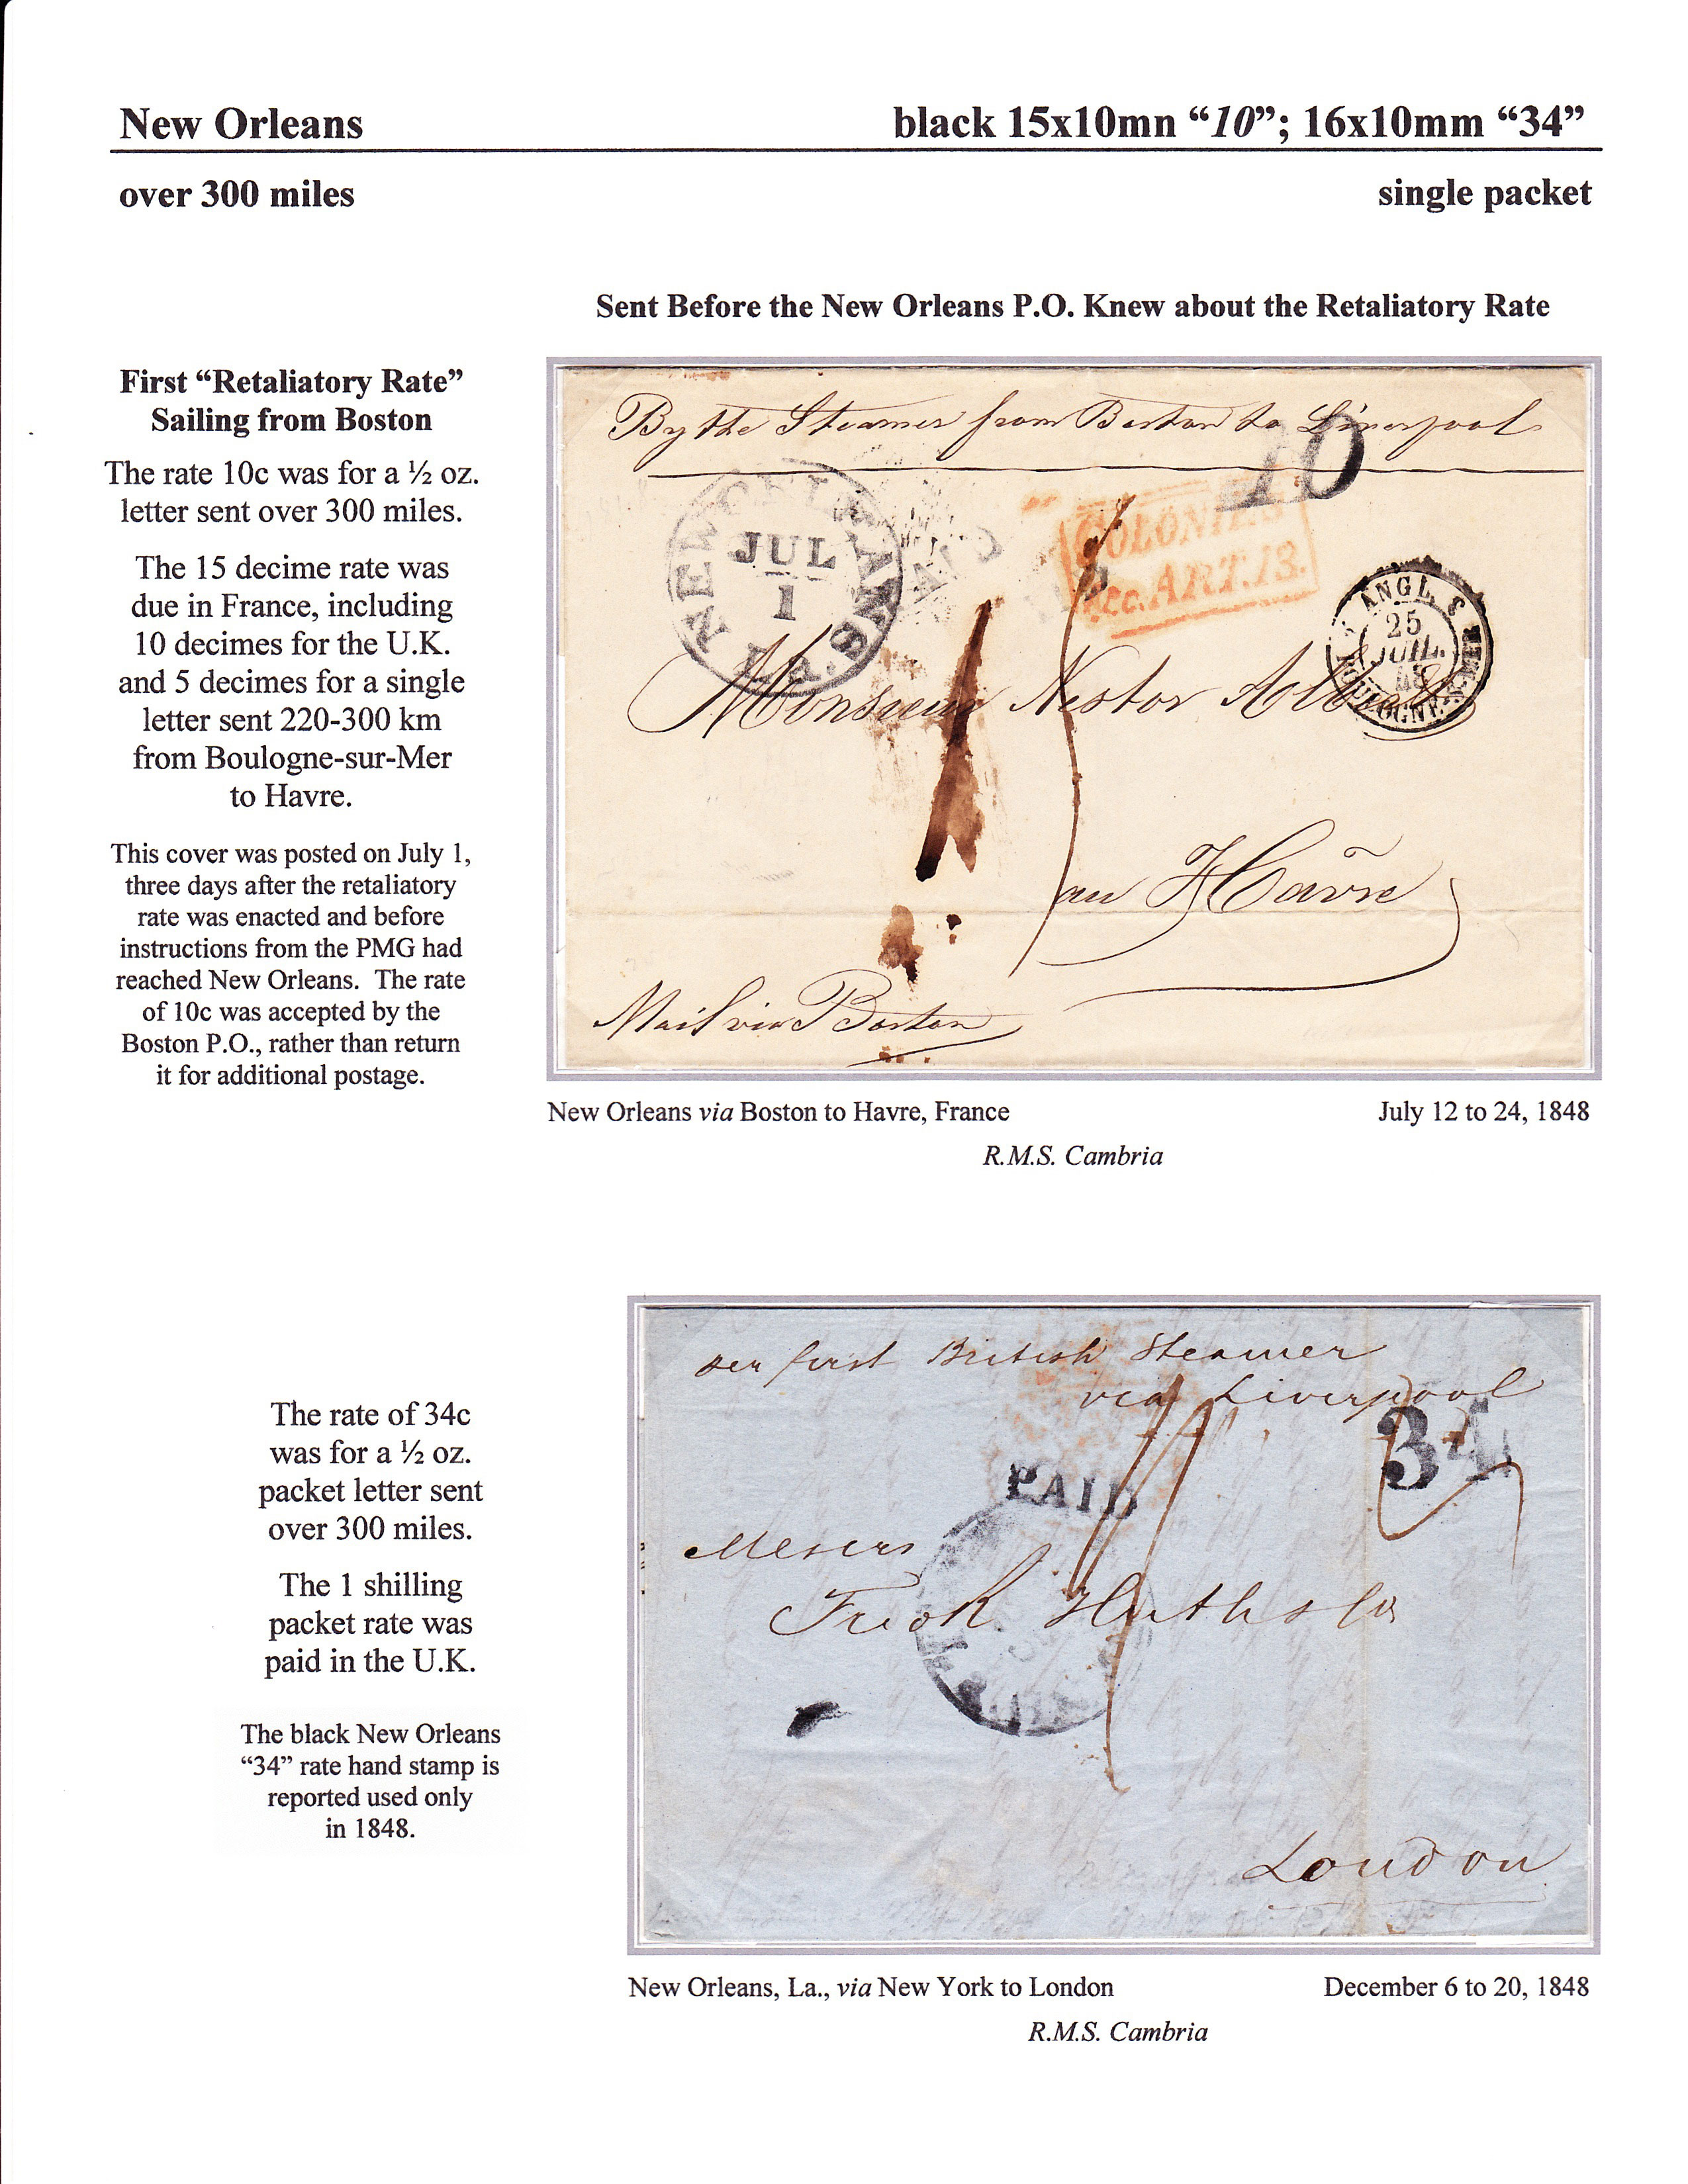 New Orleans black 15x10mn “10”; 16x10mm “34”
over 300 miles single packet
Sent Before the New Orleans P.O. Knew about the Retaliatory Rate
First “Retaliatory Rate”
Sailing from Boston
The rate 10c was for a ½ oz.
letter sent over 300 miles.
The 15 decime rate was
due in France, including
10 decimes for the U.K.
and 5 decimes for a single
letter sent 220-300 km
from Boulogne-sur-Mer
to Havre.
This cover was posted on July 1,
three days after the retaliatory
rate was enacted and before
instructions from the PMG had
reached New Orleans. The rate
of 10c was accepted by the
Boston P.O., rather than return
it for additional postage.
By the Steamer from Boston to Liverpool
10
NEW ORLEANS
JUL
1
LA.
COLONIES
&c. ART. 13.
ANGL. &
25
JUIL.
48
BOULOGNE
Monsieur Nestor
au Havre
Mail via Boston
New Orleans via Boston to Havre, France July 12 to 24, 1848
R.M.S. Cambria
The rate of 34c
was for a ½ oz.
packet letter sent
over 300 miles.
The 1 shilling
packet rate was
paid in the U.K.
The black New Orleans
“34” rate hand stamp is
reported used only
in 1848.
per first British Steamer
via Liverpool
34
PAID
Messrs
Fredk Huth & Co
London
New Orleans, La., via New York to London December 6 to 20, 1848
R.M.S. Cambria